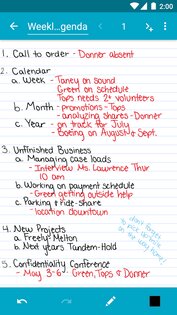 2:00
Weekl...genda
1
1. Call to order - Donner absent
2. Calendar
a. Week - Taney on sound
Green on schedule
Tops needs 2 volunteers
b. Month - promotions - Tops
- analyzing shares - Donner
c. Year - on track for July
- Boeing on August & Sept.
3. Unfinished Business
a. Managing case loads
- Interview Ms. Laurence Thur
10 am
b. Working on payment schedule
- Green getting outside help
c. Parking & ride-share
- location downtown
4. New Projects
a. Freely-Melton
b. Next years Tandem-Hold
don't forget
5. Confidentiality Conference
- May 3-6 - Green, Tops & Donner